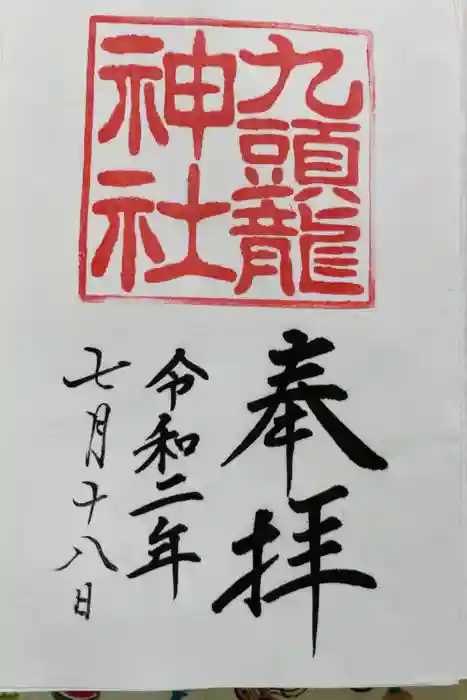 九頭龍
神社
奉拝
令和二年
七月十八日